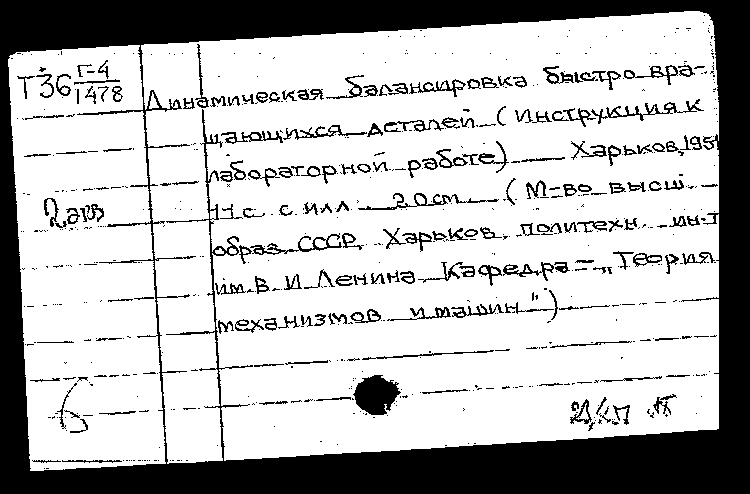 Т36 Г-4
1478
Динамическая балансировка быстро вра-
щающихся деталей (Инструкция к
лабораторной работе) Харьков, 1951
11 с. с илл. 20 см. (М-во высш.
образ. СССР. Харьков. политехн. ин-т
им. В. И. Ленина. Кафедра - „Теория
механизмов и машин")
2 экз
б